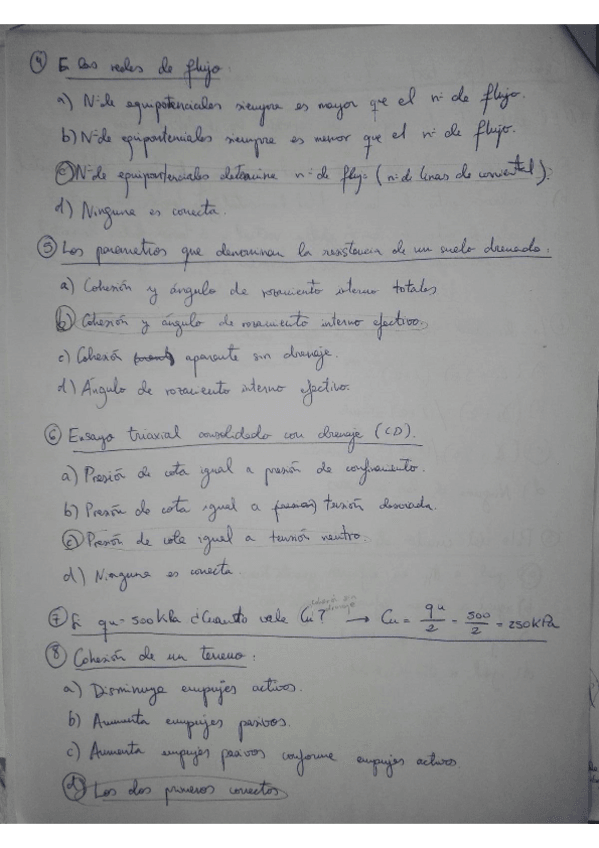 ④ En las redes de flujo.
a) Nº de equipotenciales siempre es mayor que el nº de flujo.
b) Nº de equipotenciales siempre es menor que el nº de flujo.
c) Nº de equipotenciales determina nº de flujo (nº de lineas de corriente).
d) Ninguna es correcta.
⑤ Los parametros que denominan la resistencia de un suelo drenado:
a) Cohesión y ángulo de rozamiento interno totales
b) Cohesión y ángulo de rozamiento interno efectivo.
c) Cohesión aparente sin drenaje.
d) Ángulo de rozamiento interno efectivo.
⑥ Ensayo triaxial consolidado con drenaje (CD).
a) Presión de cola igual a presión de confinamiento.
b) Presión de cola igual a tensión desviada.
c) Presión de cola igual a tensión neutra.
d) Ninguna es correcta.
⑦ Si qu = 500 kPa ¿Cuanto vale Cu? → Cu = qu/2 = 500/2 = 250 kPa
⑧ Cohesión de un terreno:
a) Disminuye empujes activos.
b) Aumenta empujes pasivos.
c) Aumenta empujes pasivos conforme empujes activos
d) Los dos primeros correctos